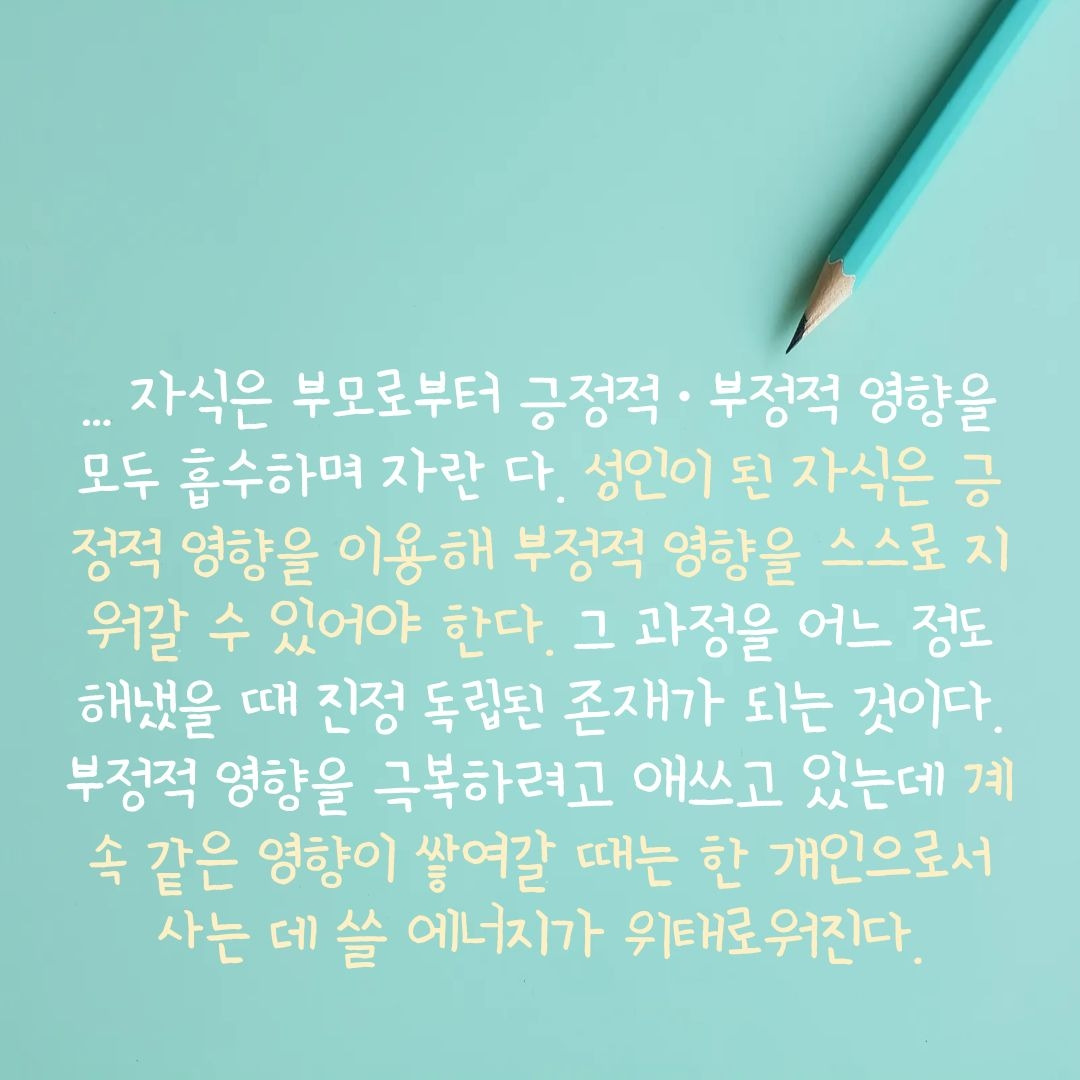 ... 자식은 부모로부터 긍정적·부정적 영향을
모두 흡수하며 자란 다. 성인이 된 자식은 긍
정적 영향을 이용해 부정적 영향을 스스로 지
워갈 수 있어야 한다. 그 과정을 어느 정도
해냈을 때 진정 독립된 존재가 되는 것이다.
부정적 영향을 극복하려고 애쓰고 있는데 계
속 같은 영향이 쌓여갈 때는 한 개인으로서
사는 데 쓸 에너지가 위태로워진다.